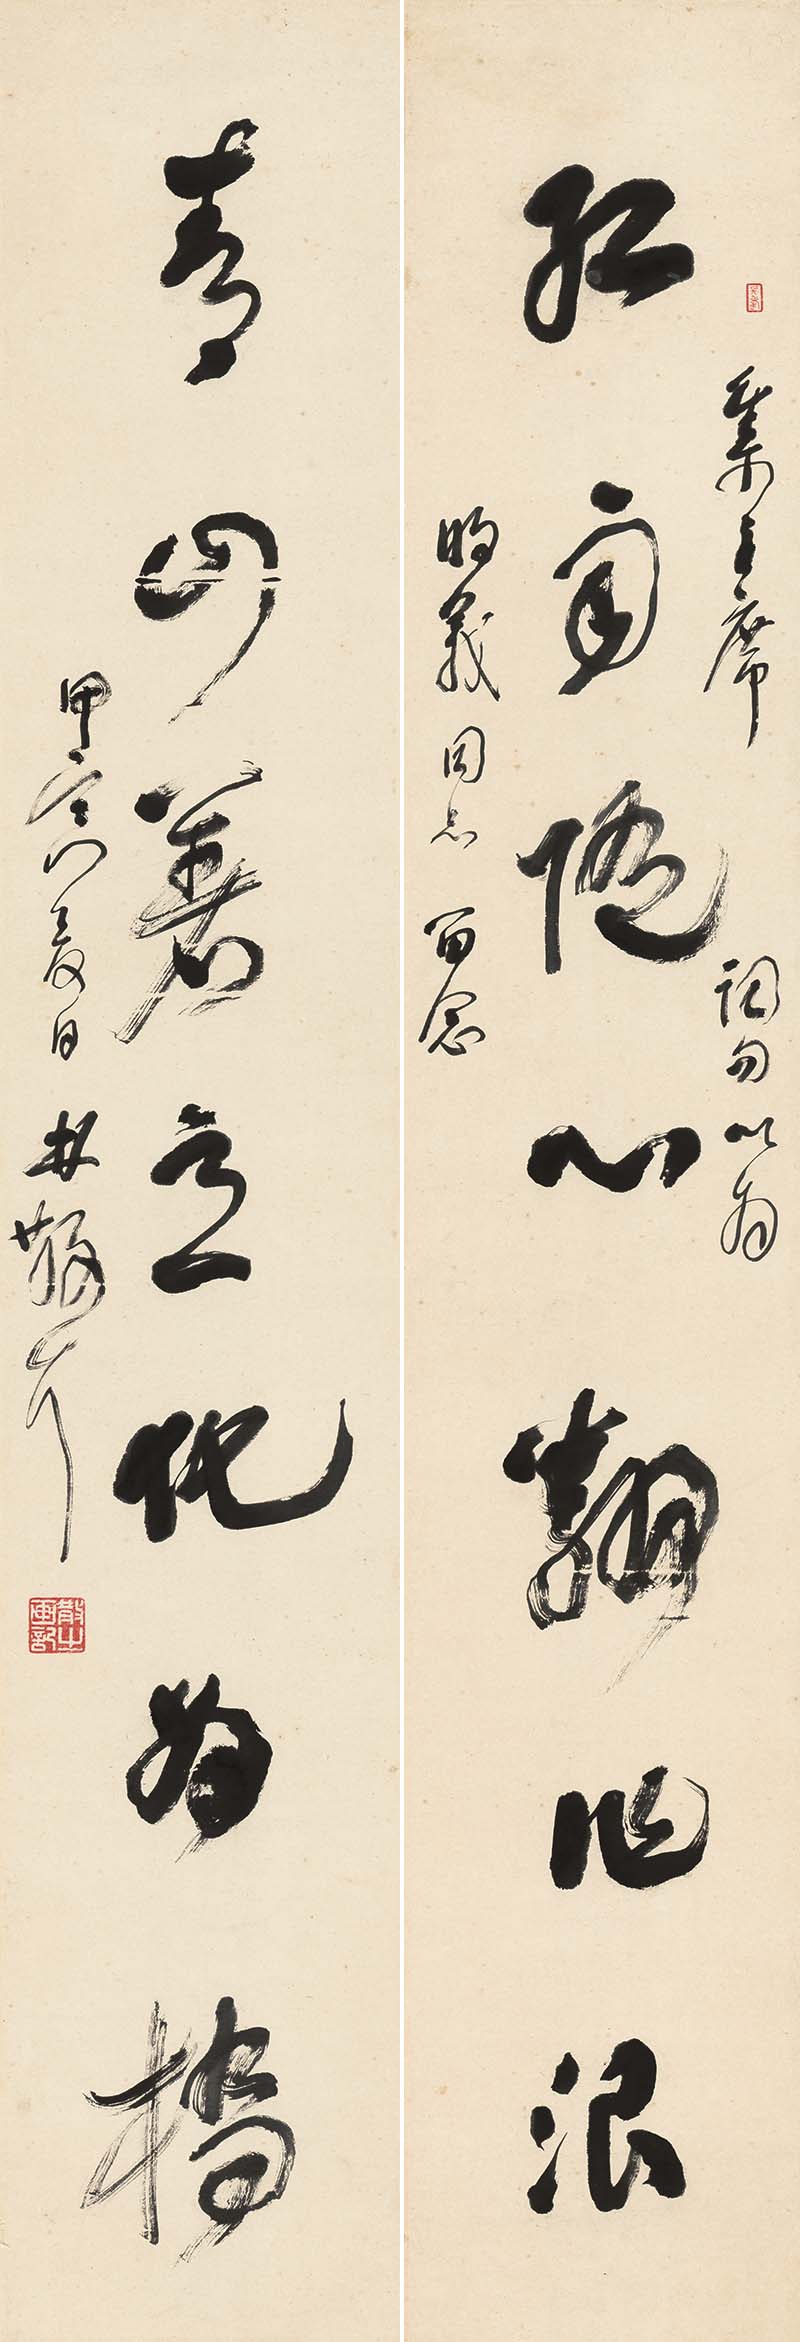 红雨随心翻作浪
集主席
词句以为
昫義同志留念
青山著意化为橋
甲寅夏日林散耳
散之畫記